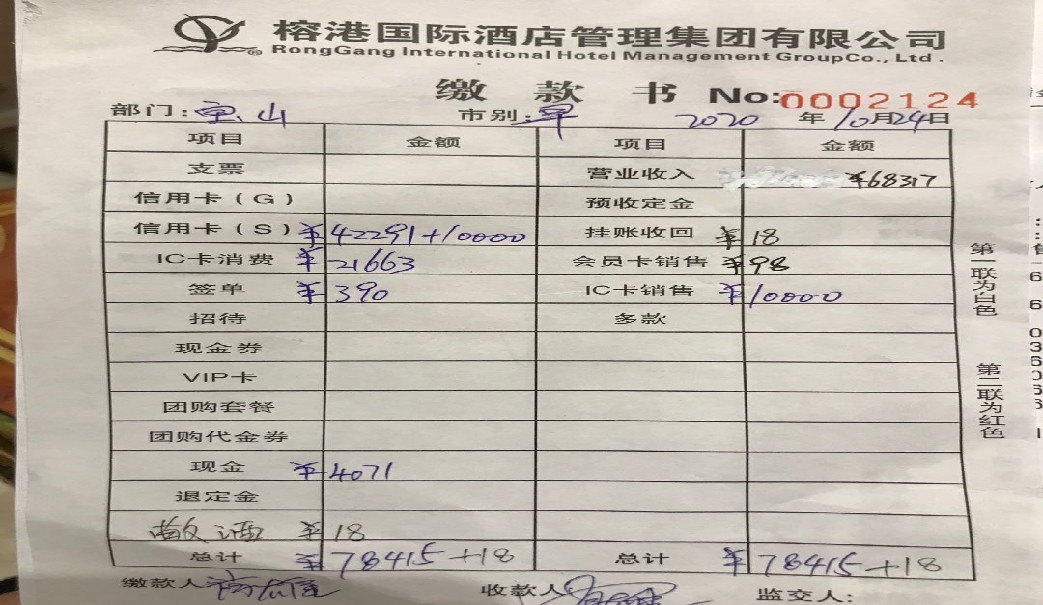 榕港国际酒店管理集团有限公司
RongGang International Hotel Management GroupCo., Ltd.
缴款书 No:0002124
部门:宝山 市别:早 2020年10月24日
项目 金额 项目 金额
支票 营业收入 ¥68317
信用卡(G) 预收定金
信用卡(S) ¥42291+10000 挂账收回 ¥18
IC卡消费 ¥21663 会员卡销售 ¥98
签单 ¥390 IC卡销售 ¥10000
招待 多款
现金券
VIP卡
团购套餐
团购代金券
现金 ¥4071
退定金
散酒 ¥18
总计 ¥78415+18 总计 ¥78415+18
缴款人 收款人 监交人:
第一联为白色
第二联为红色